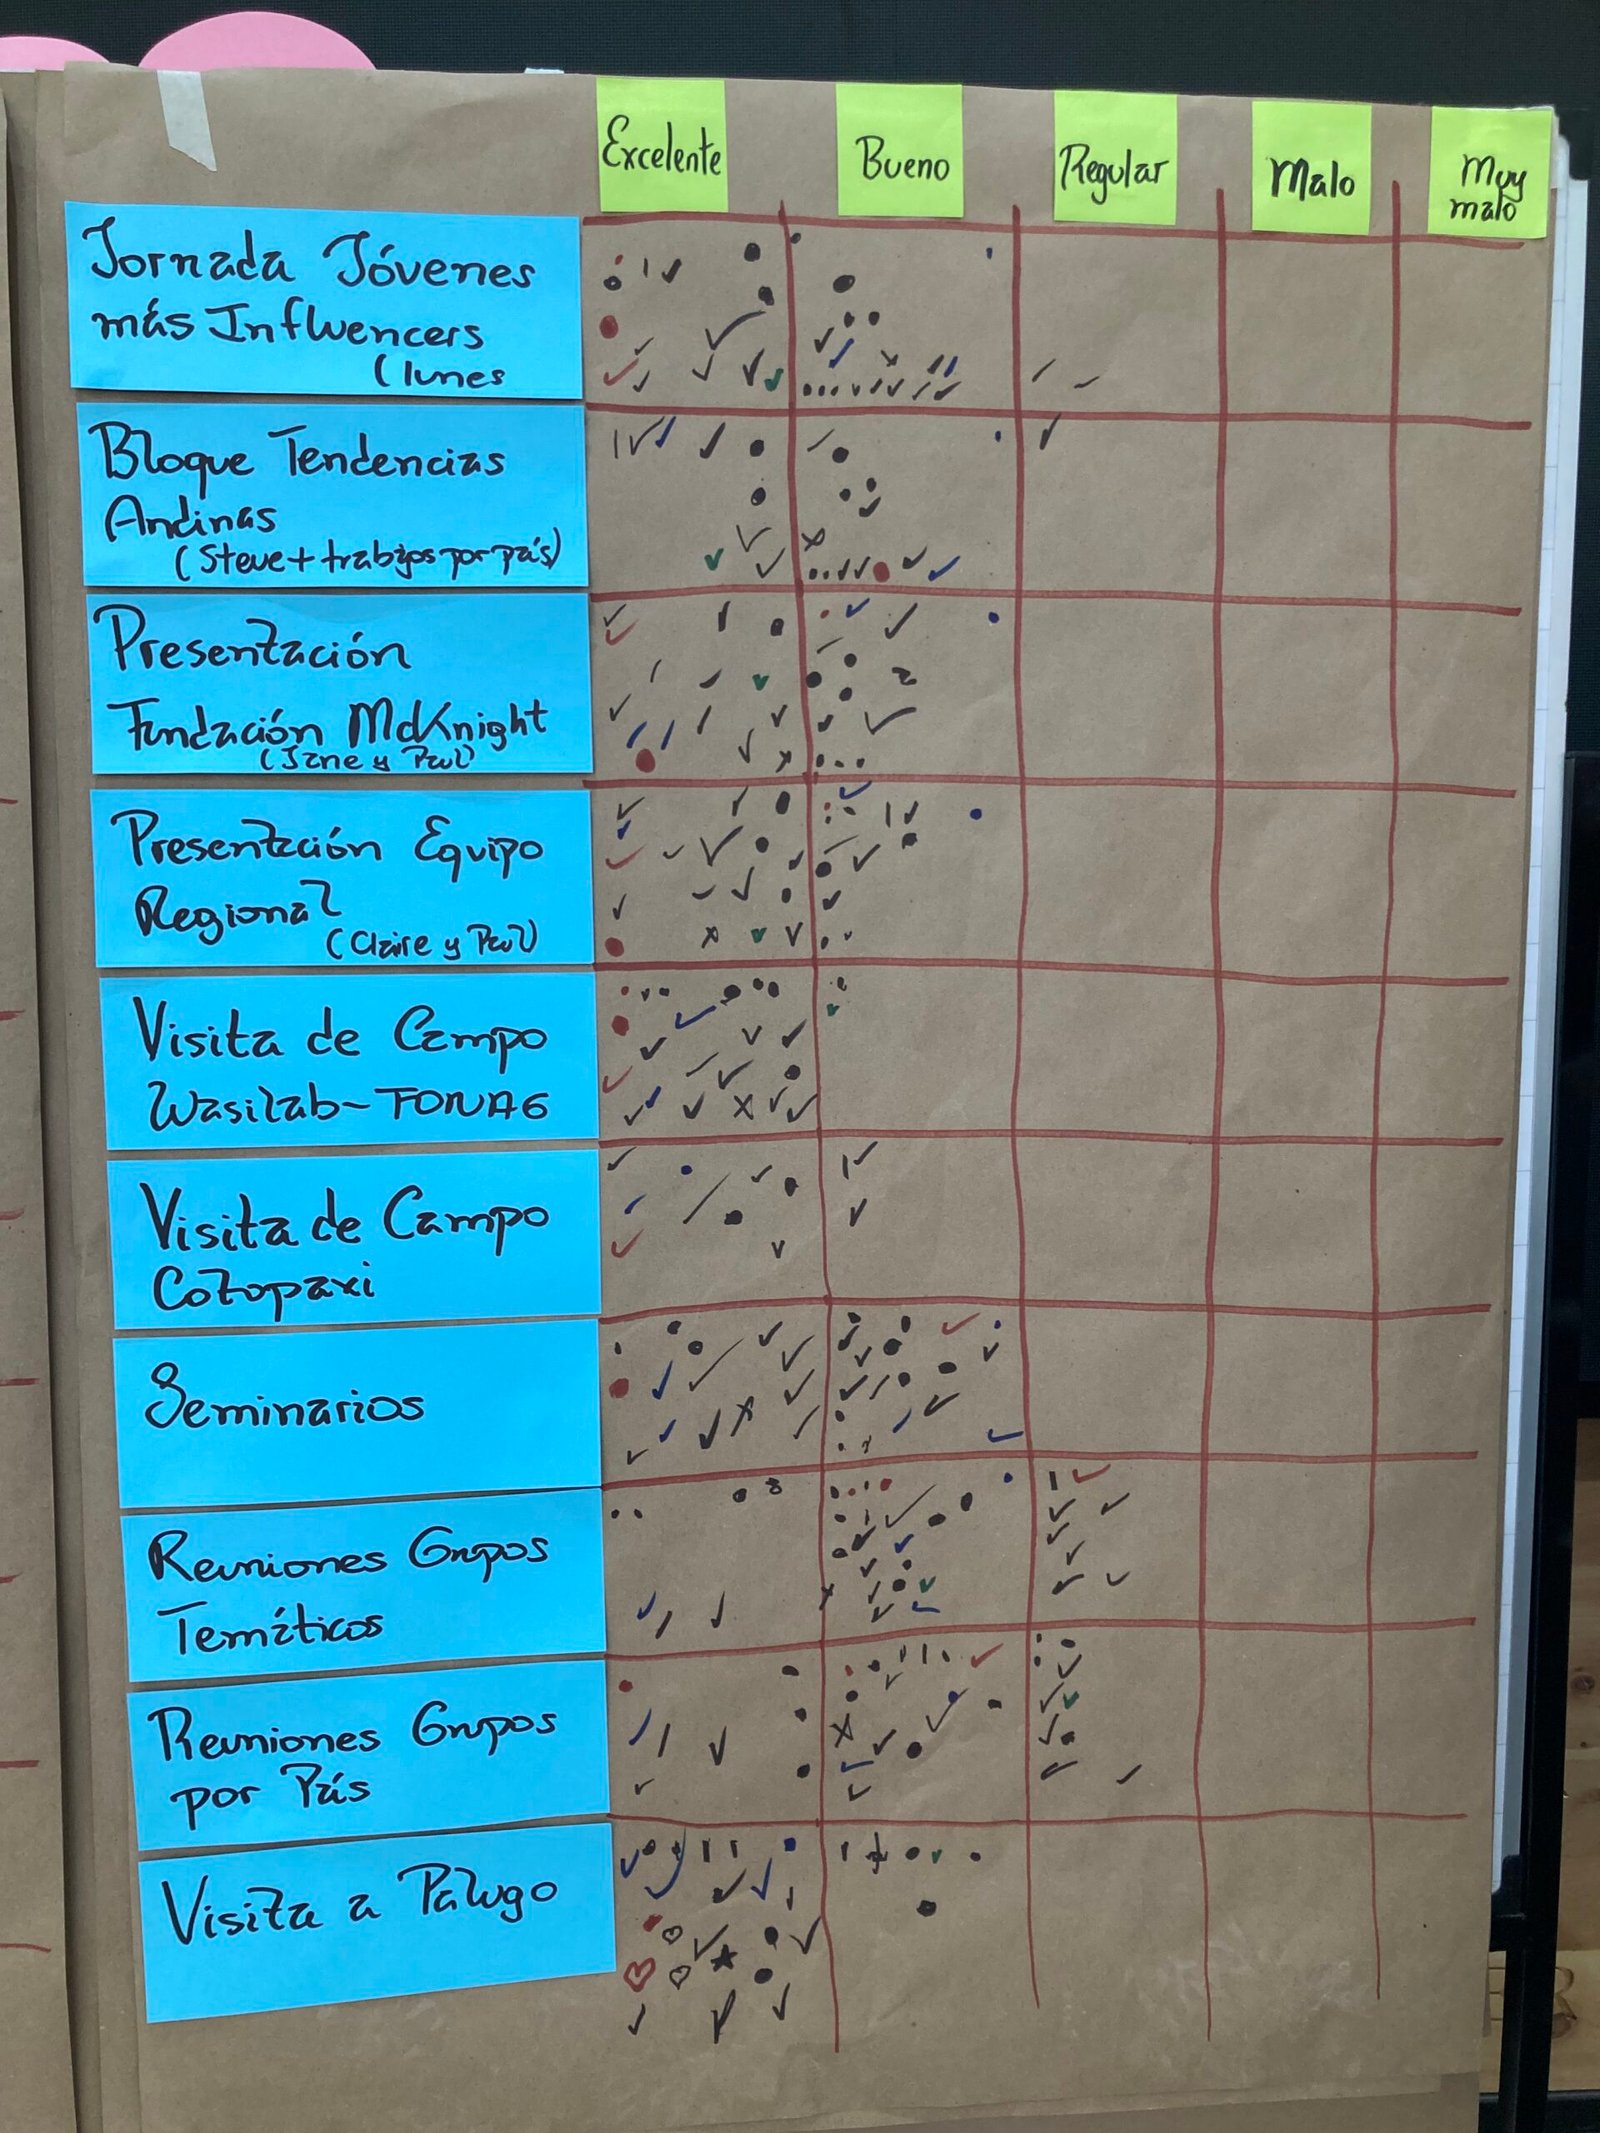 Excelente
Bueno
Regular
Malo
Muy
malo
Jornada Jóvenes
más Influencers
(lunes
Bloque Tendencias
Andinas
(Steve + trabajos por país)
Presentación
Fundación McKnight
(Jane y Paul)
Presentación Equipo
Regional
(Claire y Paul)
Visita de Campo
Wasilab - FONAG
Visita de Campo
Cotopaxi
Seminarios
Reuniones Grupos
Temáticos
Reuniones Grupos
por País
Visita a Palugo